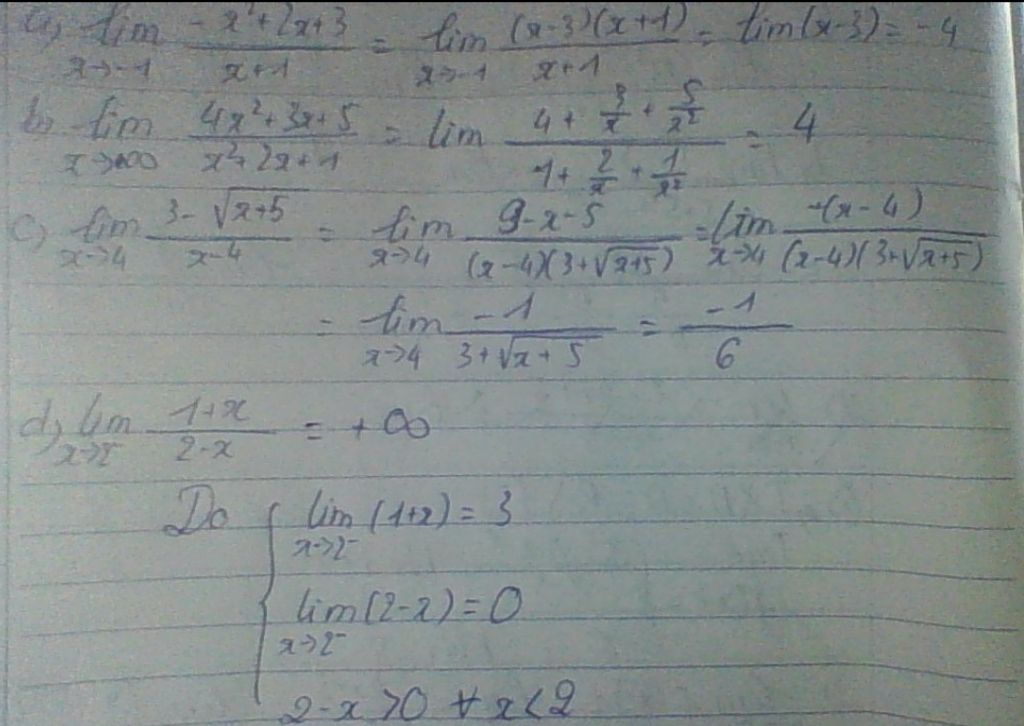 a, lim x→-1 (-x²+2x+3)/(x+1) = lim x→-1 (x-3)(x+1)/(x+1) = lim(x-3) = -4
b, lim x→∞ (4x²+3x+5)/(x²+2x+1) = lim (4 + 3/x + 5/x²)/(1 + 2/x + 1/x²) = 4
c, lim x→4 (3-√(x+5))/(x-4) = lim x→4 (9-x-5)/((x-4)(3+√(x+5))) = lim x→4 -(x-4)/((x-4)(3+√(x+5)))
= lim x→4 -1/(3+√(x+5)) = -1/6
d, lim x→2⁻ (1+x)/(2-x) = +∞
Do { lim x→2⁻ (1+x) = 3
lim x→2⁻ (2-x) = 0
2-x>0 ∀ x<2